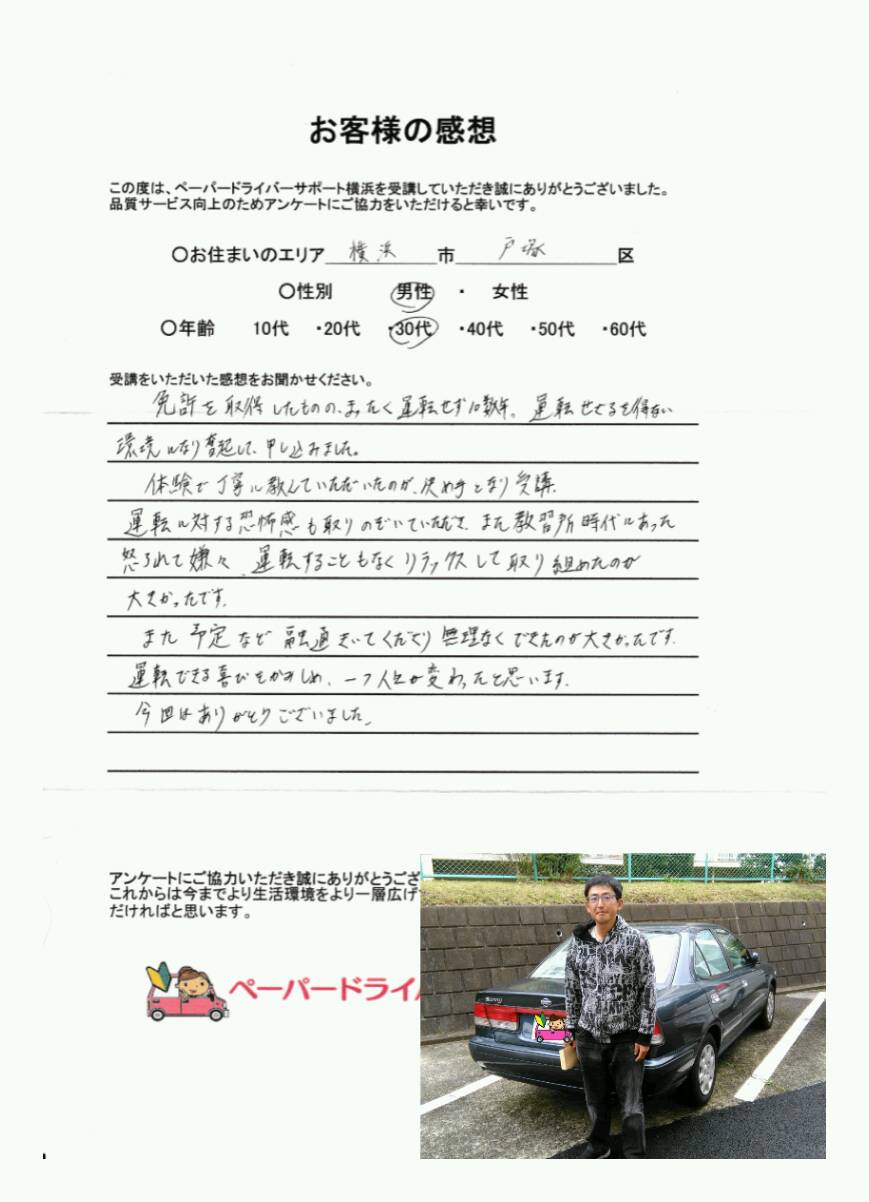 お客様の感想
この度は、ペーパードライバーサポート横浜を受講していただき誠にありがとうございました。
品質サービス向上のためアンケートにご協力をいただけると幸いです。
〇お住まいのエリア 横浜 市 戸塚 区
〇性別 男性 ・ 女性
〇年齢 10代 ・20代 ・30代 ・40代 ・50代 ・60代
受講をいただいた感想をお聞かせください。
免許を取得したものの、まったく運転せず10数年。運転せざるを得ない
環境になり奮起して、申し込みました。
体験で丁寧に教えていただいたのが、決め手となり受講。
運転に対する恐怖感も取りのぞいていただき、また教習所時代にあった
怒られて嫌々、運転することもなくリラックスして取り組めたのが
大きかったです。
また予定など融通きいてくださり無理なくできたのが大きかったです。
運転できる喜びをかみしめ、一つ人生が変わったと思います。
今回はありがとうございました。
アンケートにご協力いただき誠にありがとうござ
これからは今までより生活環境をより一層広げ
だければと思います。
ペーパードライバ
Sunny